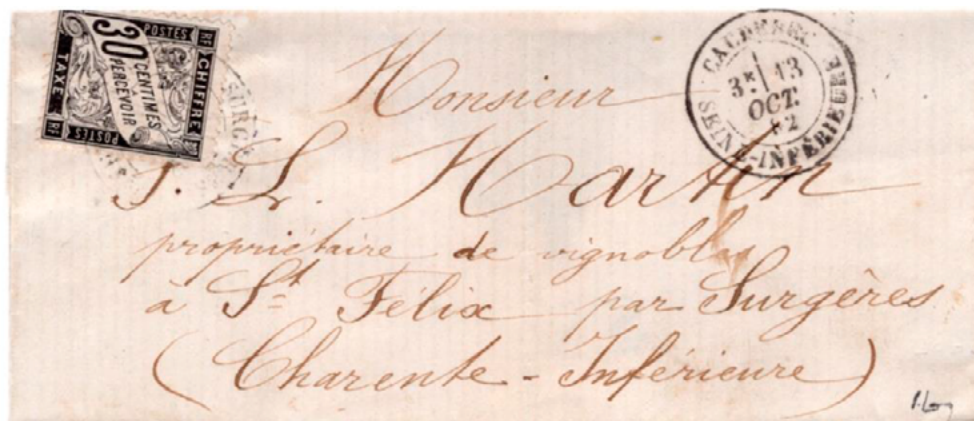 RF POSTES RF
CHIFFRE
TAXE
30
CENTIMES
PERCEVOIR
RF POSTES RF
CAUDEBEC
3E 13
OCT.
82
SEINE-INFÉRIEURE
SURG
Monsieur
J. L. Martin
propriétaire de vignobles
à St Félix par Surgères
(Charente-Inférieure)